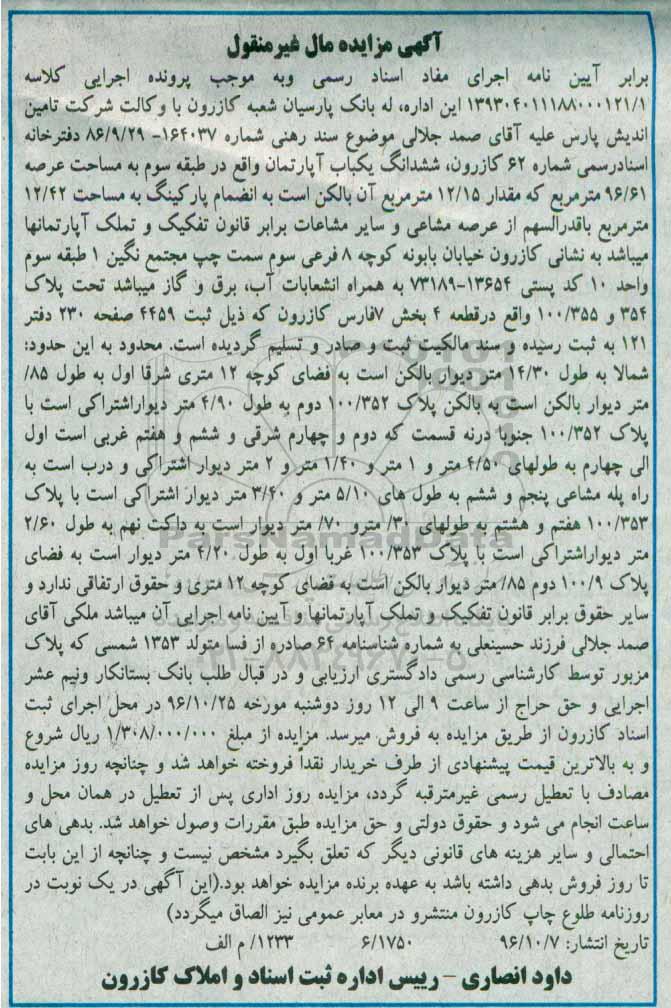 آگهی مزایده مال غیرمنقول
برابر آیین نامه اجرای مفاد اسناد رسمی وبه موجب پرونده اجرایی کلاسه
۱۳۹۳۰۴۰۱۱۱۸۸۰۰۰۱۲۱/۱ این اداره، له بانک پارسیان شعبه کازرون با وکالت شرکت تامین
اندیش پارس علیه آقای صمد جلالی موضوع سند رهنی شماره ۱۶۴۰۳۷- ۸۶/۹/۲۹ دفترخانه
اسنادرسمی شماره ۶۲ کازرون، ششدانگ یکباب آپارتمان واقع در طبقه سوم به مساحت عرصه
۹۶/۶۱ مترمربع که مقدار ۱۲/۱۵ مترمربع آن بالکن است به انضمام پارکینگ به مساحت ۱۲/۴۲
مترمربع باقدرالسهم از عرصه مشاعی و سایر مشاعات برابر قانون تفکیک و تملک آپارتمانها
میباشد به نشانی کازرون خیابان بابونه کوچه ۸ فرعی سوم سمت چپ مجتمع نگین ۱ طبقه سوم
واحد ۱۰ کد پستی ۱۳۶۵۴-۷۳۱۸۹ به همراه انشعابات آب، برق و گاز میباشد تحت پلاک
۳۵۴ و ۱۰۰/۳۵۵ واقع درقطعه ۴ بخش ۷فارس کازرون که ذیل ثبت ۴۴۵۹ صفحه ۲۳۰ دفتر
۱۲۱ به ثبت رسیده و سند مالکیت ثبت و صادر و تسلیم گردیده است. محدود به این حدود:
شمالا به طول ۱۴/۳۰ متر دیوار بالکن است به فضای کوچه ۱۲ متری شرقا اول به طول ۸۵/
متر دیوار بالکن است به بالکن پلاک ۱۰۰/۳۵۲ دوم به طول ۴/۹۰ متر دیواراشتراکی است با
پلاک ۱۰۰/۳۵۲ جنوبا درنه قسمت که دوم و چهارم شرقی و ششم و هفتم غربی است اول
الی چهارم به طولهای ۴/۵۰ متر و ۱ متر و ۱/۴۰ متر و ۲ متر دیوار اشتراکی و درب است به
راه پله مشاعی پنجم و ششم به طول های ۵/۱۰ متر و ۳/۴۰ متر دیوار اشتراکی است با پلاک
۱۰۰/۳۵۳ هفتم و هشتم به طولهای ۳۰/ مترو ۷۰/ متر دیوار است به داکت نهم به طول ۲/۶۰
متر دیواراشتراکی است با پلاک ۱۰۰/۳۵۳ غربا اول به طول ۴/۲۰ متر دیوار است به فضای
پلاک ۱۰۰/۹ دوم ۸۵/ متر دیوار بالکن است به فضای کوچه ۱۲ متری و حقوق ارتفاقی ندارد و
سایر حقوق برابر قانون تفکیک و تملک آپارتمانها و آیین نامه اجرایی آن میباشد ملکی آقای
صمد جلالی فرزند حسینعلی به شماره شناسنامه ۶۴ صادره از فسا متولد ۱۳۵۳ شمسی که پلاک
مزبور توسط کارشناسی رسمی دادگستری ارزیابی و در قبال طلب بانک بستانکار ونیم عشر
اجرایی و حق حراج از ساعت ۹ الی ۱۲ روز دوشنبه مورخه ۹۶/۱۰/۲۵ در محل اجرای ثبت
اسناد کازرون از طریق مزایده به فروش میرسد. مزایده از مبلغ ۱/۳۰۸/۰۰۰/۰۰۰ ریال شروع
و به بالاترین قیمت پیشنهادی از طرف خریدار نقداً فروخته خواهد شد و چنانچه روز مزایده
مصادف با تعطیل رسمی غیرمترقبه گردد، مزایده روز اداری پس از تعطیل در همان محل و
ساعت انجام می شود و حقوق دولتی و حق مزایده طبق مقررات وصول خواهد شد. بدهی های
احتمالی و سایر هزینه های قانونی دیگر که تعلق بگیرد مشخص نیست و چنانچه از این بابت
تا روز فروش بدهی داشته باشد به عهده برنده مزایده خواهد بود.(این آگهی در یک نوبت در
روزنامه طلوع چاپ کازرون منتشرو در معابر عمومی نیز الصاق میگردد)
تاریخ انتشار: ۹۶/۱۰/۷ ۶/۱۷۵۰ ۱۲۳۳/ م الف
داود انصاری – رییس اداره ثبت اسناد و املاک کازرون
ParsNamadData